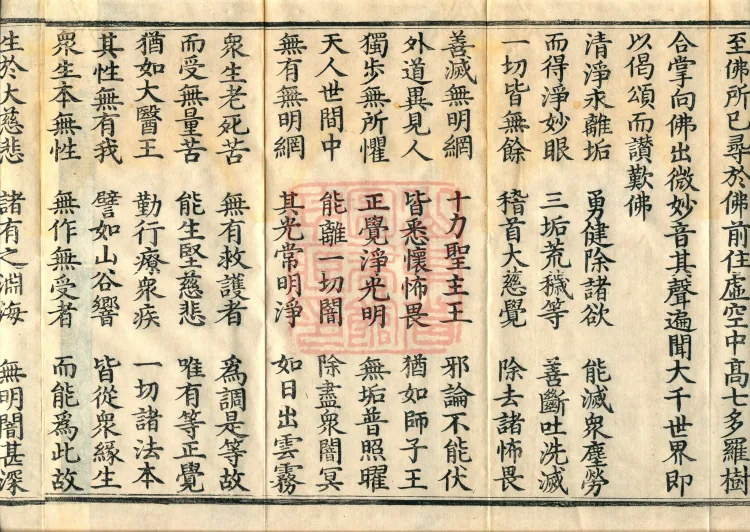 至佛所已尋於佛前住虛空中高七多羅樹
合掌向佛出微妙音其聲遍聞大千世界即
以偈頌而讚歎佛
清淨永離垢 勇健除諸欲 能滅衆塵勞
而得淨妙眼 三垢荒穢等 善斷吐洗滅
一切皆無餘 稽首大慈覺 除去諸怖畏
善滅無明網 十力聖主王 邪論不能伏
外道異見人 皆悉懷怖畏 猶如師子王
獨步無所懼 正覺淨光明 無垢普照曜
天人世間中 能離一切闇 除盡衆闇冥
無有無明網 其光常明淨 如日出雲霧
衆生老死苦 無有救護者 爲調是等故
而受無量苦 能生堅慈悲 唯有等正覺
猶如大醫王 勤行療衆疾 一切諸法本
其性無有我 譬如山谷響 皆從衆緣生
衆生本無性 無作無受者 而能爲此故
生於大慈悲 諸有之淵海 無明闇甚深